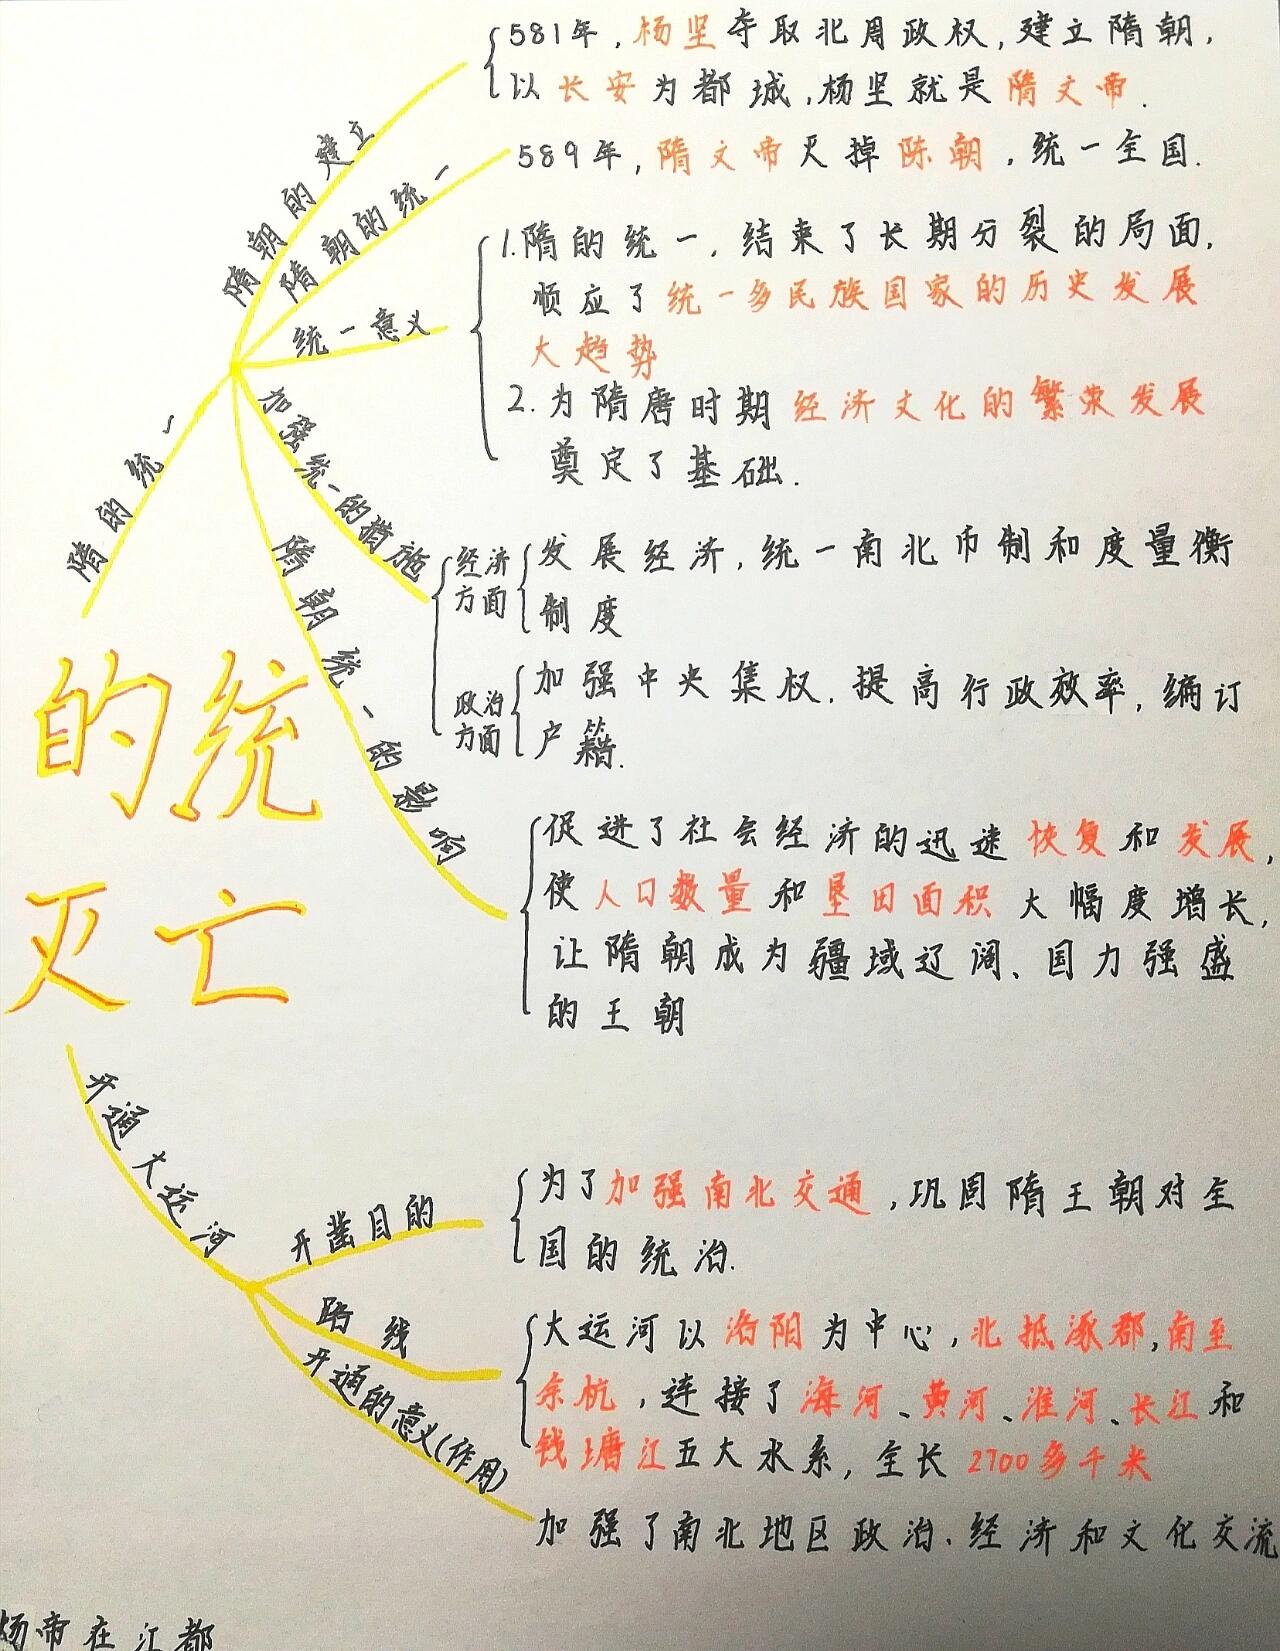 581年，杨坚夺取北周政权，建立隋朝，
以长安为都城，杨坚就是隋文帝．
隋朝的建立
589年，隋文帝灭掉陈朝，统一全国．
隋朝的统一
1.隋的统一，结束了长期分裂的局面，
顺应了统一多民族国家的历史发展
大趋势
统一意义
2.为隋唐时期经济文化的繁荣发展
奠定了基础．
隋的统一
加强统一的措施
经济
方面
发展经济，统一南北币制和度量衡
制度
政治
方面
加强中央集权．提高行政效率，编订
户籍．
隋朝统一的影响
促进了社会经济的迅速恢复和发展，
使人口数量和垦田面积大幅度增长，
让隋朝成为疆域辽阔、国力强盛
的王朝
的统
灭亡
开通大运河
开凿目的
为了加强南北交通，巩固隋王朝对全
国的统治．
路线
大运河以洛阳为中心，北抵涿郡，南至
余杭，连接了海河、黄河、淮河、长江和
钱塘江五大水系，全长2700多千米
开通的意义(作用)
加强了南北地区政治、经济和文化交流
炀帝在江都